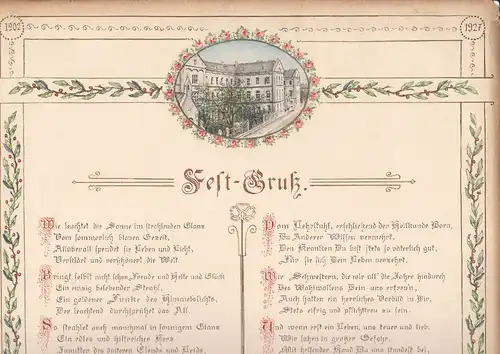 1902
1927
Fest-Gruß.
Wie leuchtet die Sonne im strahlenden Glanz
Vom sommerlich blauen Gezelt,
Allüberall spendet sie Leben und Licht,
Verklärt und verschönet die Welt.
Bringt selbst nicht schon Freude und Helle und Glück
Ein einzig belebender Strahl,
Ein goldener Funke des Himmelslichts,
Der leuchtend durchsprühet das All.
So strahlet auch manchmal in sonnigem Glanz
Ein edles und hilfreiches Herz
Inmitten des düsteren Elends und Leids,
Vom Lehrstuhl, erschließend der Heilkunde Born,
Du Anderer Wissen vermehrst,
Den Kranken Du bist stets so väterlich gut,
Für sie sich Dein Leben verzehrt.
Wir Schwestern, die wir all' die Jahre hindurch
Des Wohlwollens Dein uns erfreu'n,
Auch hatten ein herrliches Vorbild in Dir,
Stets eifrig und pflichttreu zu sein.
Und wenn erst ein Leben, uns teuer und lieb,
Wir sahen in großer Gefahr,
Mit helfender Hand Du uns standest bei,